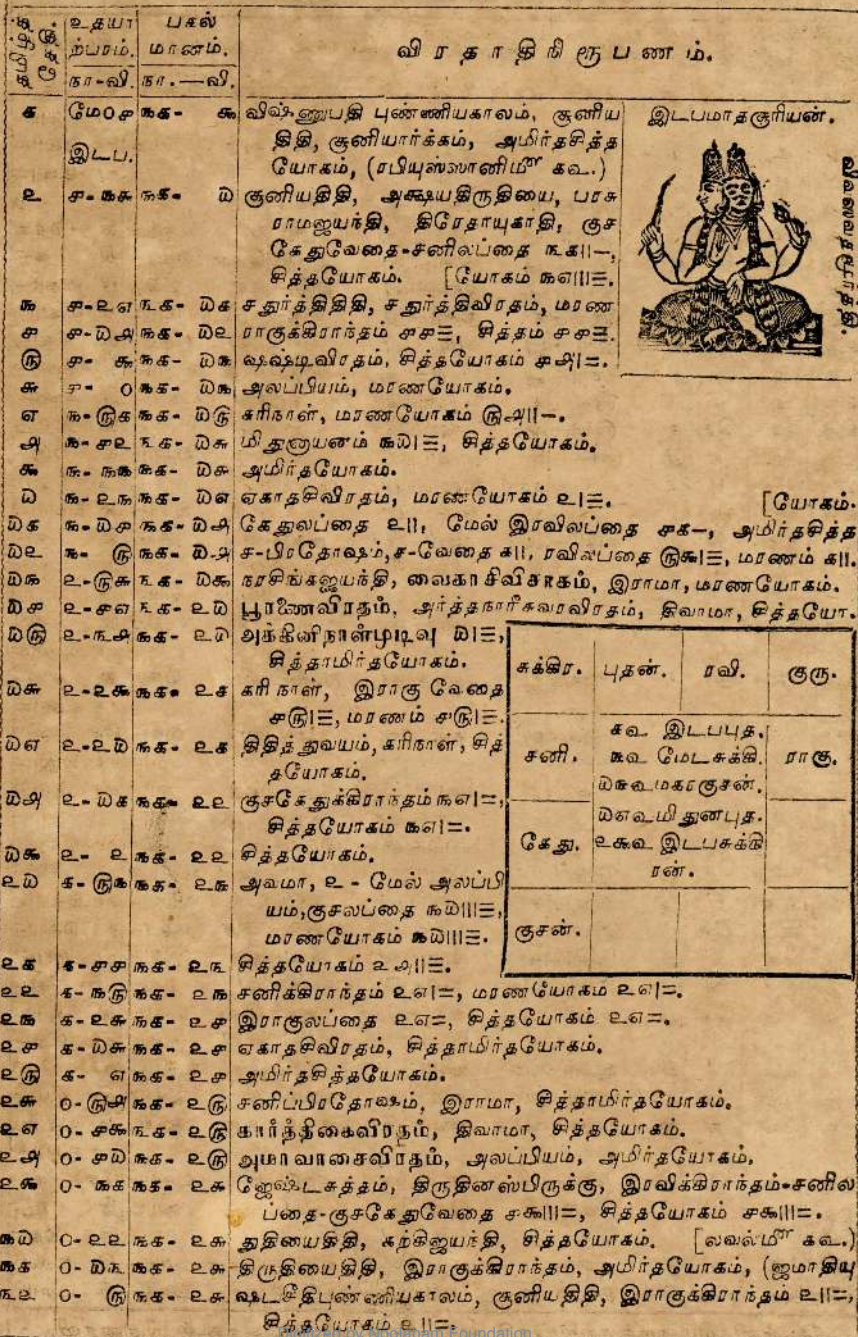 தமிழ்த் தேதி. உதயாற்பரம். நா-வி. பகல்மானம். நா.—வி. விரதாதிநிரூபணம்.
இடபமாதசூரியன்.
விஸ்வதமூர்த்தி.
க மே0௪ ௩௧- ௯ விஷ்ணுபதி புண்ணியகாலம், சூனிய
இடப. திதி, சூனியார்க்கம், அமிர்தசித்த
யோகம், (ரபியுஸ்ஸானிமீ ௧௳.)
௨ ௪-௩௬ ௩௧- ௰ சூனியதிதி, அக்ஷயதிருதியை, பரசு
ராமஜயந்தி, திரேதாயுகாதி, குச
கேதுவேதை-சனிலப்தை ௩௧||–,
சித்தயோகம். [யோகம் ௩௭|||≡.
௩ ௪-௨௭ ௩௧- ௰௧ சதுர்த்திதிதி, சதுர்த்திவிரதம், மரண
௪ ௪-௰௮ ௩௧- ௰௨ ராகுக்கிராந்தம் ௪௪≡, சித்தம் ௪௪≡.
௫ ௪- ௯ ௩௧- ௰௩ ஷஷ்டிவிரதம், சித்தயோகம் ௪௮|=.
௬ ௪- 0 ௩௧- ௰௩ அலப்பியம், மரணயோகம்.
௭ ௩-௫௧ ௩௧- ௰௫ கரிநாள், மரணயோகம் ௫௮||–.
௮ ௩-௪௨ ௩௧- ௰௬ மிதுனாயனம் ௩௰|≡, சித்தயோகம்.
௯ ௩-௩௩ ௩௧- ௰௬ அமிர்தயோகம்.
௰ ௩-௨௩ ௩௧- ௰௭ ஏகாதசிவிரதம், மரணயோகம் ௨|=. [யோகம்.
௰௧ ௩-௰௪ ௩௧- ௰௮ கேதுலப்தை ௨||, மேல் இரவிலப்தை ௪௧–, அமிர்தசித்த
௰௨ ௩- ௫ ௩௧- ௰௮ ச-பிரதோஷம், ச-வேதை ௧||, ரவிலப்தை ௫௬|≡, மரணம் ௧||.
௰௩ ௨-௫௬ ௩௧- ௰௯ நரசிங்கஜயந்தி, வைகாசிவிசாகம், இராமா, மரணயோகம்.
௰௪ ௨-௪௭ ௩௧- ௨௰ பூரணைவிரதம், அர்த்தநாரீசுவரவிரதம், திவாமா, சித்தயோ.
௰௫ ௨-௩௮ ௩௧- ௨௰ அக்கினிநாள்முடிவு ௰|≡,
சித்தாமிர்தயோகம்.
௰௬ ௨-௨௯ ௩௧- ௨௧ கரி நாள், இராகு வேதை
௪௫|≡, மரணம் ௪௫|≡.
௰௭ ௨-௨௰ ௩௧- ௨௧ திதித்துவயம், கரிநாள், சித்
தயோகம்.
௰௮ ௨-௰௧ ௩௧- ௨௨ குசகேதுக்கிராந்தம் ௩௭|=,
சித்தயோகம் ௩௭|=.
௰௯ ௨- ௨ ௩௧- ௨௨ சித்தயோகம்.
௨௰ ௧-௫௩ ௩௧- ௨௩ அவமா, ௨ - மேல் அலப்பி
யம், குசலப்தை ௩௰|||≡,
மரணயோகம் ௩௰|||≡.
சுக்கிர. புதன். ரவி. குரு.
சனி. ராகு.
௧௳ இடபபுத.
௩௳ மேடசுக்கி.
௰௬௳மகரகுசன்.
௰௭௳மிதுனபுத.
௨௯௳ இடபசுக்கி
ரன்.
கேது.
குசன்.
௨௧ ௧-௪௪ ௩௧- ௨௩ சித்தயோகம் ௨௮||≡.
௨௨ ௧-௩௫ ௩௧- ௨௩ சனிக்கிராந்தம் ௨௭|=, மரணயோகம் ௨௭|=.
௨௩ ௧-௨௬ ௩௧- ௨௪ இராகுலப்தை ௨௭=, சித்தயோகம் ௨௭=.
௨௪ ௧-௰௬ ௩௧- ௨௪ ஏகாதசிவிரதம், சித்தாமிர்தயோகம்.
௨௫ ௧- ௭ ௩௧- ௨௪ அமிர்தசித்தயோகம்.
௨௬ 0-௫௮ ௩௧- ௨௫ சனிப்பிரதோஷம், இராமா, சித்தாமிர்தயோகம்.
௨௭ 0-௪௯ ௩௧- ௨௫ கார்த்திகைவிரதம், திவாமா, சித்தயோகம்.
௨௮ 0-௪௰ ௩௧- ௨௫ அமாவாசைவிரதம், அலப்பியம், அமிர்தயோகம்.
௨௯ 0-௩௧ ௩௧- ௨௬ ஜேஷ்டசுத்தம், திருதினஸ்பிருக்கு, இரவிக்கிராந்தம்-சனில
ப்தை-குசகேதுவேதை ௪௯|||=, சித்தயோகம் ௪௯|||=.
௩௰ 0-௨௨ ௩௧- ௨௬ துதியைதிதி, கற்கிஜயந்தி, சித்தயோகம். [லவல்மீ ௧௳.)
௩௧ 0-௰௩ ௩௧- ௨௬ திருதியைதிதி, இராகுக்கிராந்தம், அமிர்தயோகம், (ஜமாதியு
௩௨ 0- ௫ ௩௧- ௨௬ ஷடசீதிபுண்ணியகாலம், சூனியதிதி, இராகுக்கிராந்தம் ௨||=,
சித்தயோகம் ௨||=.
Digitized by Noolaham Foundation.